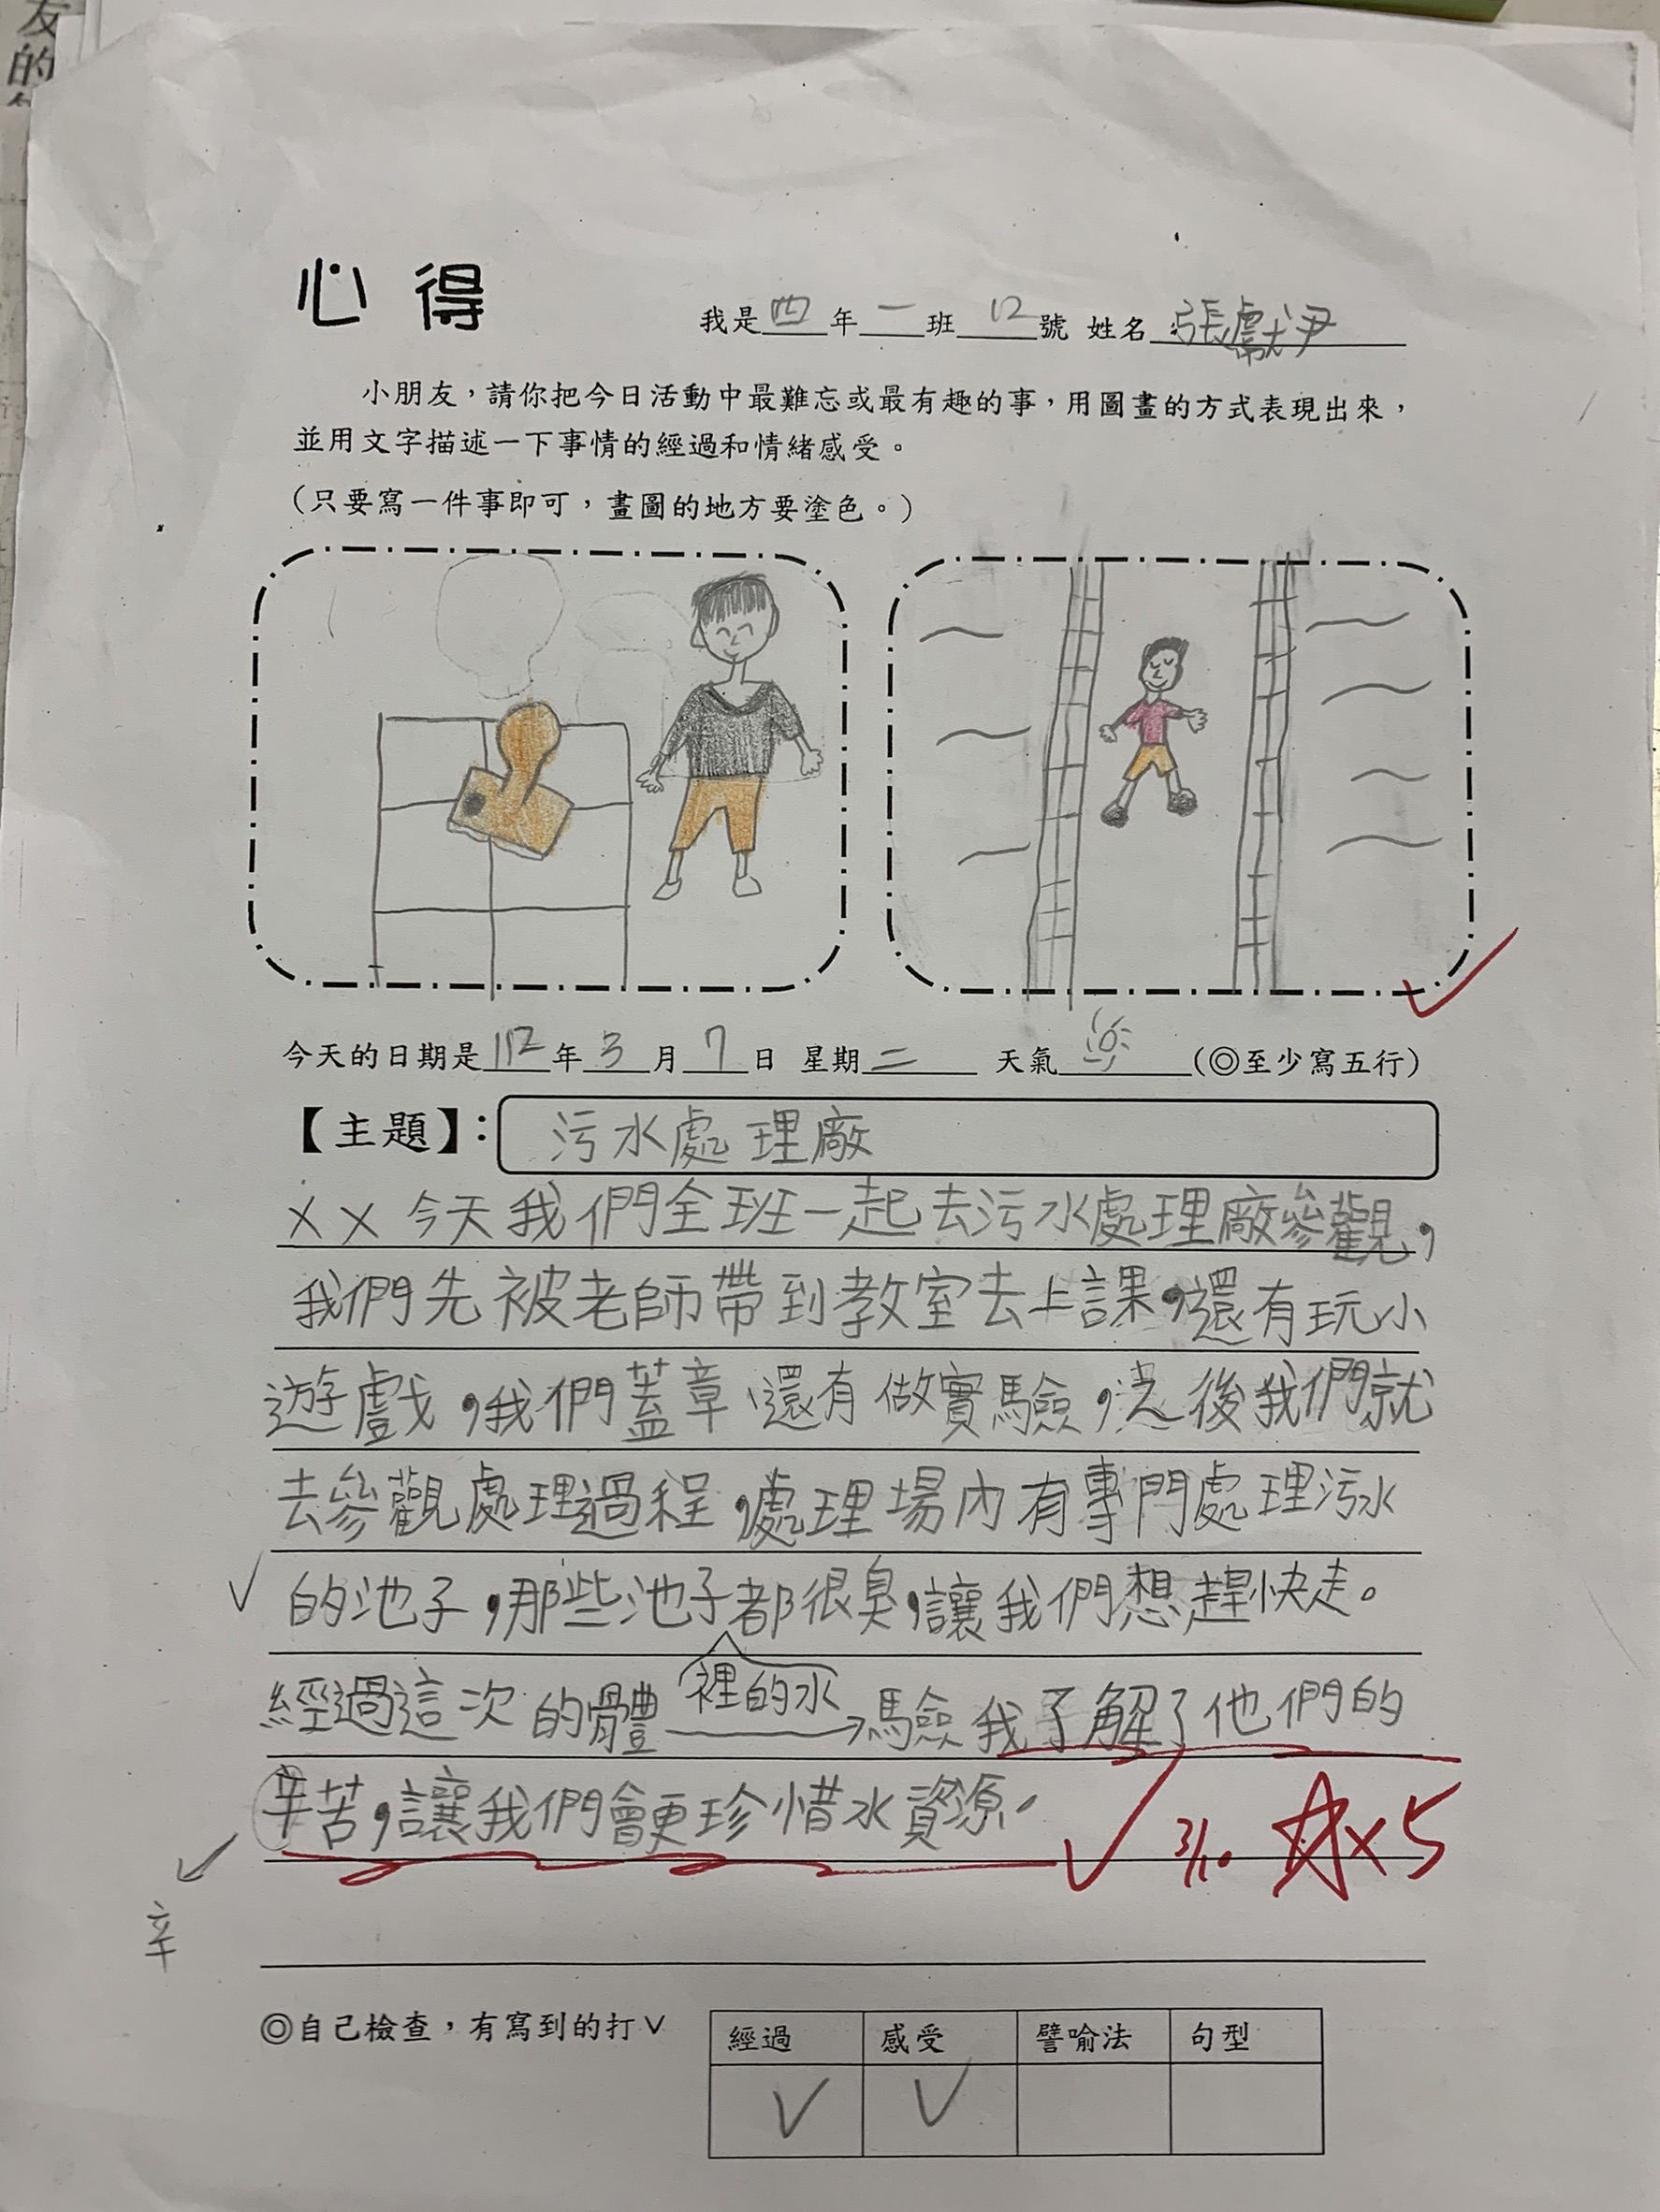 友的
心得
我是四年一班12號 姓名 張獻尹
小朋友，請你把今日活動中最難忘或最有趣的事，用圖畫的方式表現出來，
並用文字描述一下事情的經過和情緒感受。
（只要寫一件事即可，畫圖的地方要塗色。）
今天的日期是112年3月7日 星期二 天氣 （◎至少寫五行）
【主題】：污水處理廠
××今天我們全班一起去污水處理廠參觀，
我們先被老師帶到教室去上課，還有玩小
遊戲，我們蓋章、還有做實驗，然後我們就
去參觀處理過程，處理場內有專門處理污水
✓的池子，那些池子都很臭，讓我們想趕快走。
裡的水
經過這次的體→驗我了解了他們的
辛苦，讓我們會更珍惜水資源。
✓ 3/10 ☆×5
辛
◎自己檢查，有寫到的打✓
經過 感受 譬喻法 句型
✓ ✓